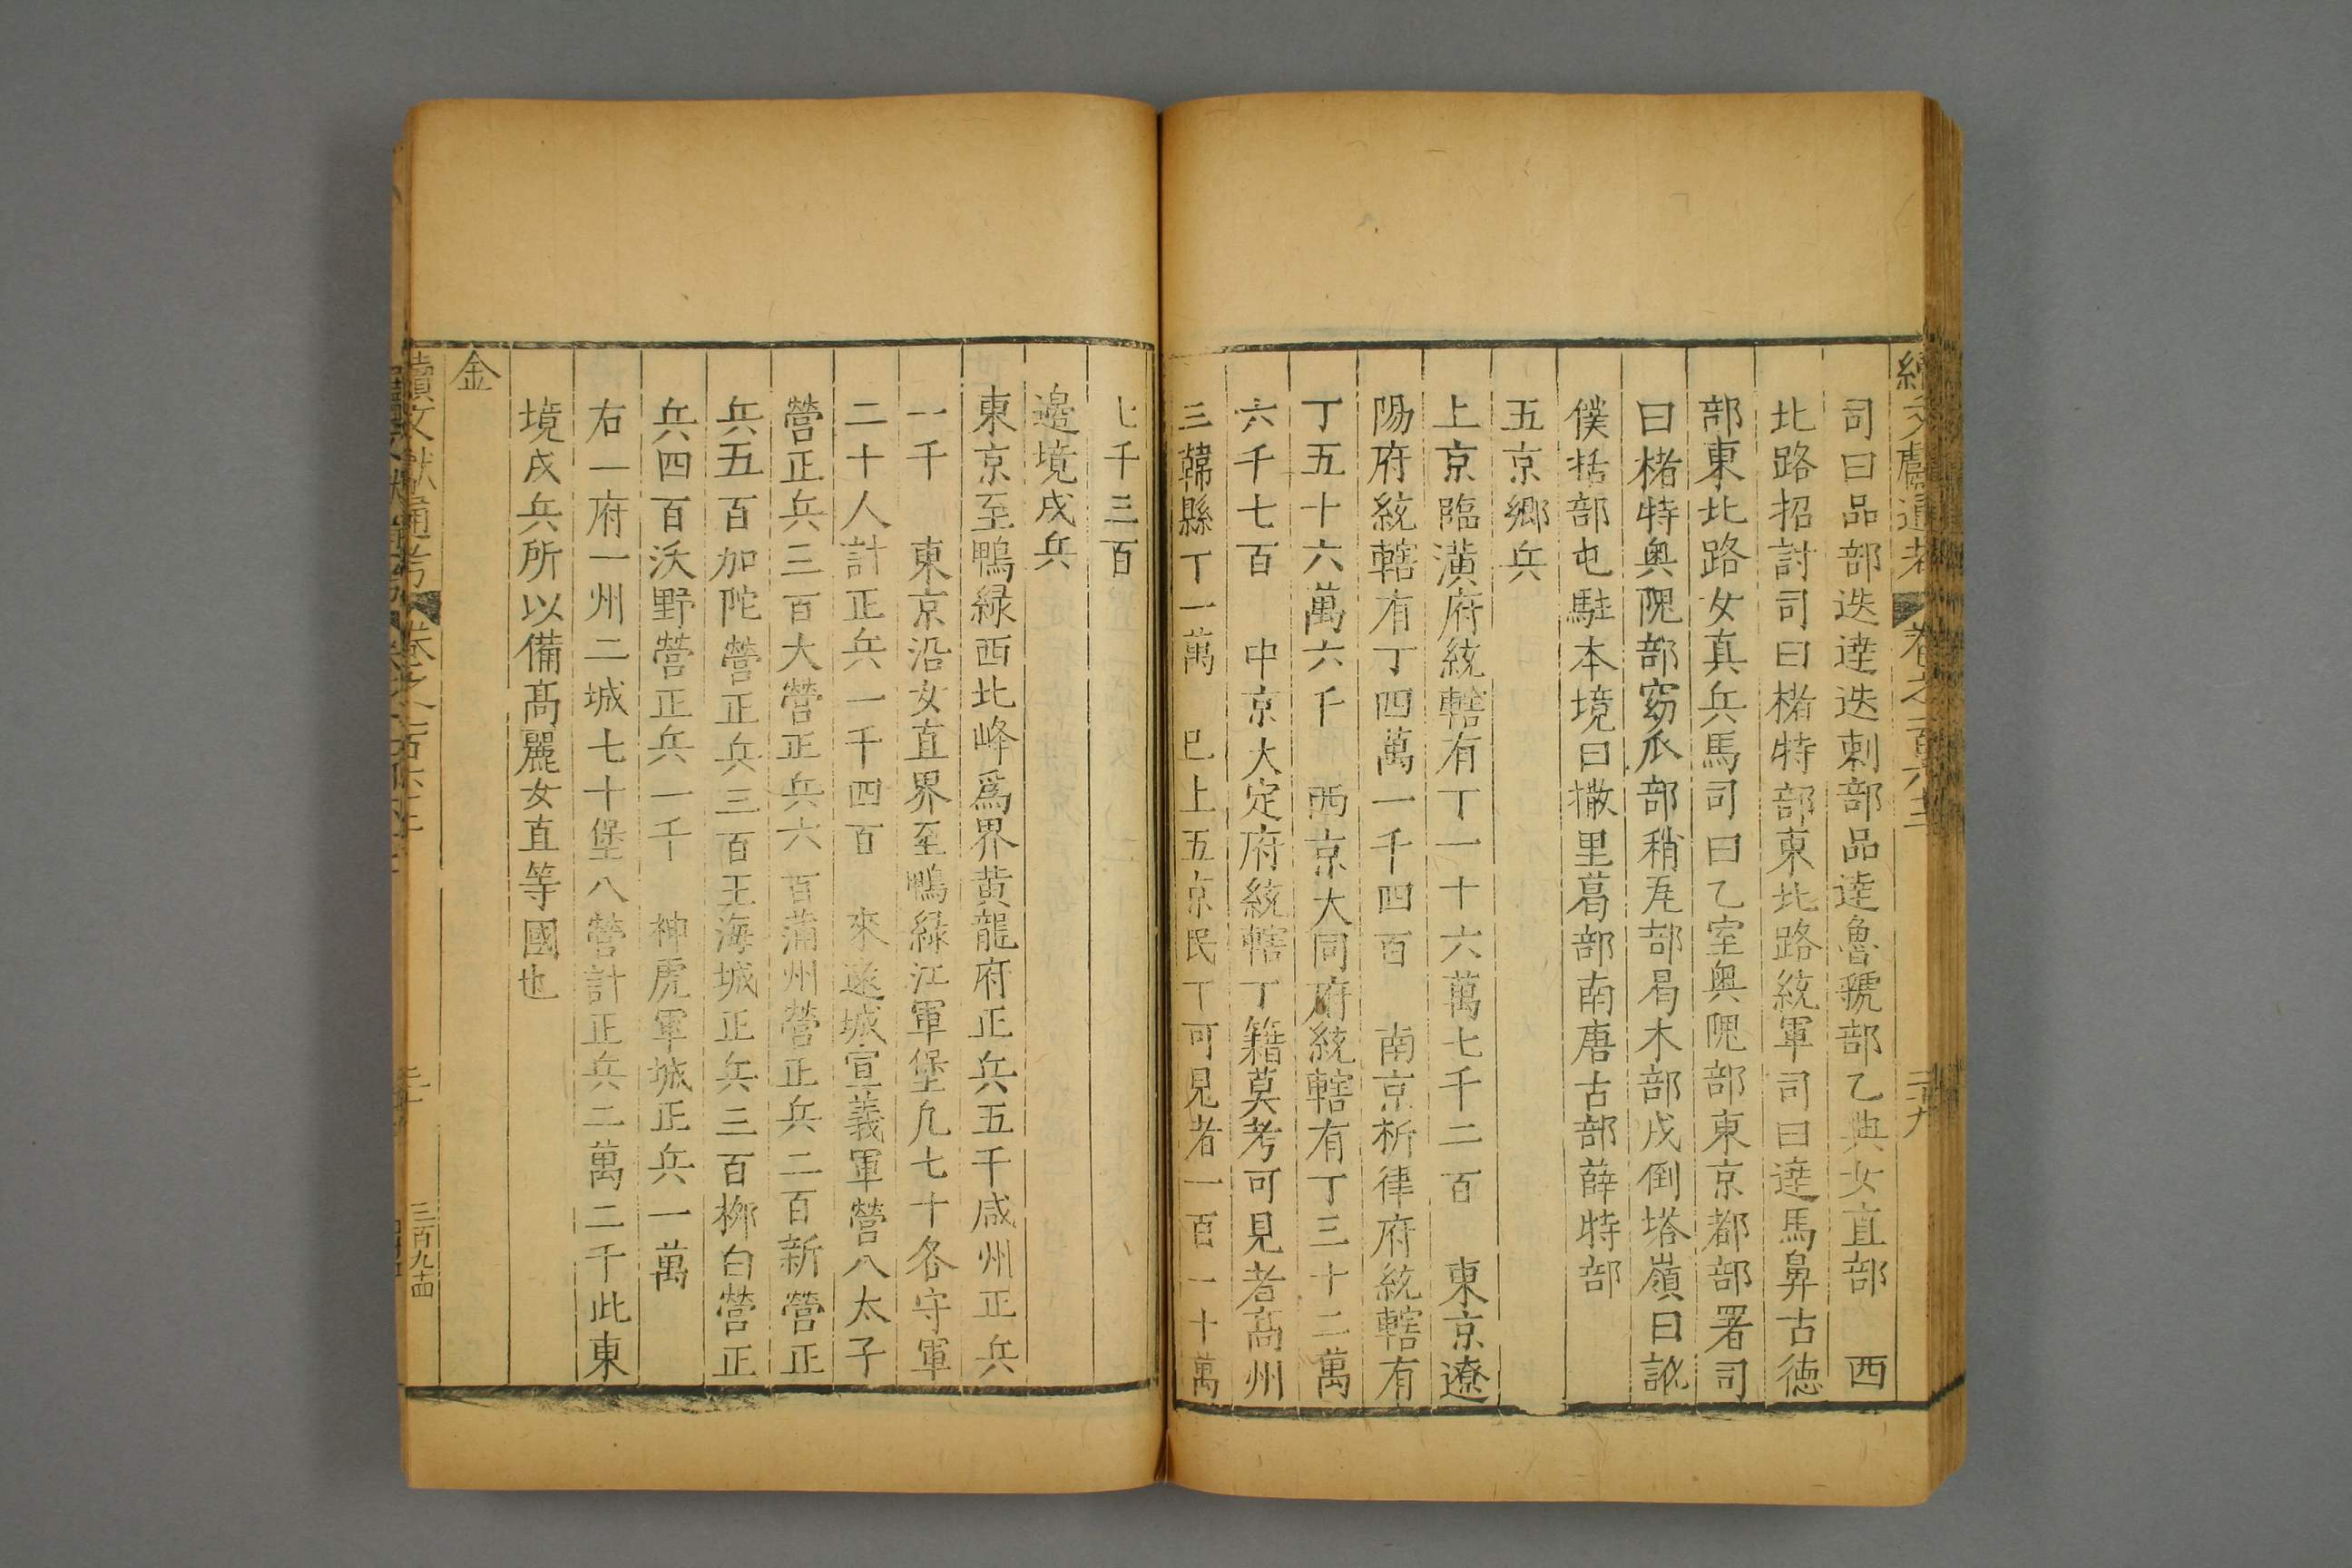 司曰品部迭達迭剌部品達魯虢部乙典女直部　西
北路招討司曰楮特部東北路統軍司曰達馬鼻古徳
部東北路女真兵馬司曰乙室奥隗部東京都部署司
曰楮特奥隗部窈爪部稍瓦部曷木部戍倒塔嶺曰訛
僕括部屯駐本境曰撒里葛部南唐古部薛特部
五京鄉兵
上京臨潢府統轄有丁一十六萬七千二百　東京遼
陽府統轄有丁四萬一千四百　南京析律府統轄有
丁五十六萬六千　西京大同府統轄有丁三十二萬
六千七百　中京大定府統轄丁籍莫考可見者高州
三韓縣丁一萬　已上五京民丁可見者一百一十萬
七千三百
邊境戍兵
東京至鴨緑西北峰爲界黄龍府正兵五千咸州正兵
一千　東京沿女直界至鴨緑江軍堡凢七十各守軍
二十人計正兵一千四百　來遠城宣義軍營八太子
營正兵三百大營正兵六百蒲州營正兵二百新營正
兵五百加陀營正兵三百王海城正兵三百栁白營正
兵四百沃野營正兵一千　神虎軍城正兵一萬
右一府一州二城七十堡八營計正兵二萬二千此東
境戍兵所以備髙麗女直等國也
金
續文獻通考　卷之一百六十二
三百九十四